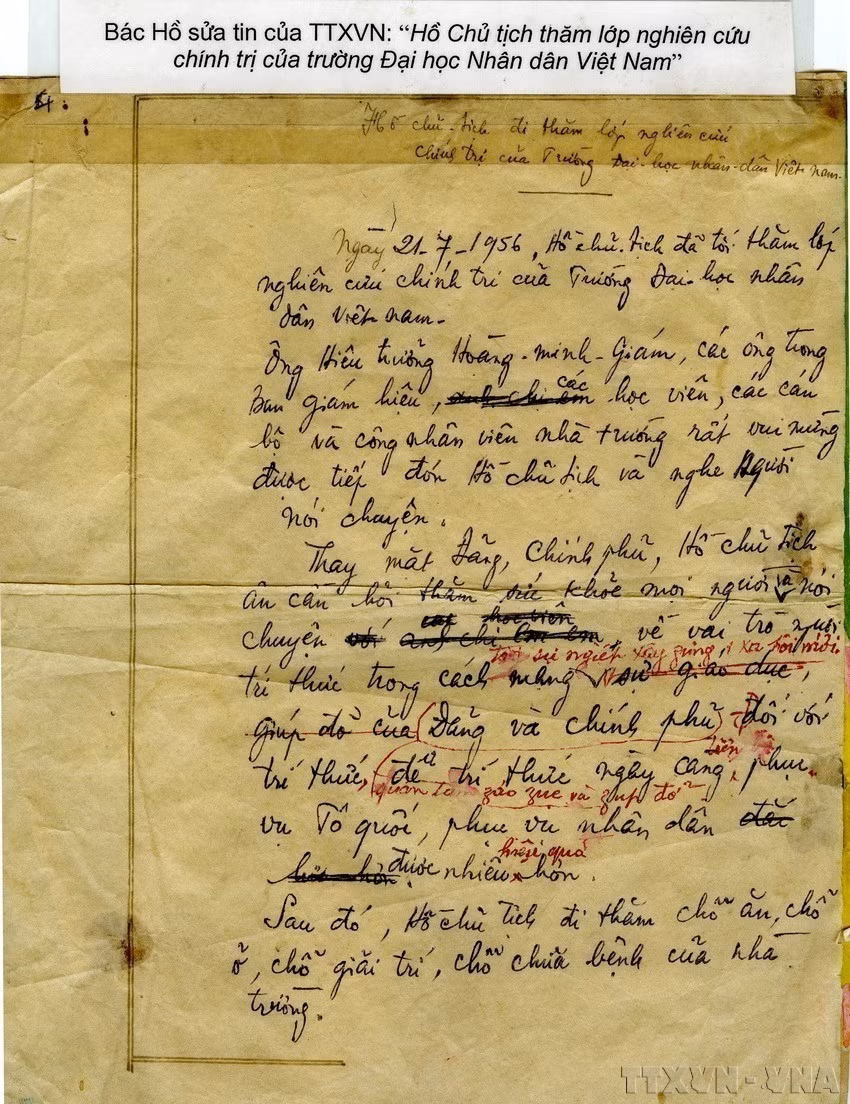 Bác Hồ sửa tin của TTXVN: “Hồ Chủ tịch thăm lớp nghiên cứu
chính trị của trường Đại học Nhân dân Việt Nam”
Hồ chủ-tịch đi thăm lớp nghiên cứu
chính trị của Trường Đại-học nhân-dân Việt-nam-
Ngày 21-7-1956, Hồ chủ-tịch đã tới thăm lớp
nghiên cứu chính trị của Trường Đại-học nhân
dân Việt-nam-
Ông Hiệu trưởng Hoàng-minh-Giám, các ông trong
Ban giám hiệu, anh chị em các học viên, các cán
bộ và công nhân viên nhà trường rất vui mừng
được tiếp đón Hồ chủ tịch và nghe Người
nói chuyện.
Thay mặt Đảng, Chính phủ, Hồ chủ tịch
ân cần hỏi thăm sức khỏe mọi người và nói
các học viên
chuyện với anh chị em, về vai trò người
sự nghiệp xây zựng xã hội mới
trí thức trong cách mạng sự giáo dục,
giúp đỡ của Đảng và chính phủ đối với
tiến bộ
trí thức, để trí thức ngày càng phục
quan tâm záo zục và zúp đỡ
vụ Tổ quốc, phục vụ nhân dân đắc
hiệu quả
lực hơn được nhiều hơn.
Sau đó, Hồ chủ tịch đi thăm chỗ ăn, chỗ
ở, chỗ giải trí, chỗ chữa bệnh của nhà
trường.
TTXVN-VNA